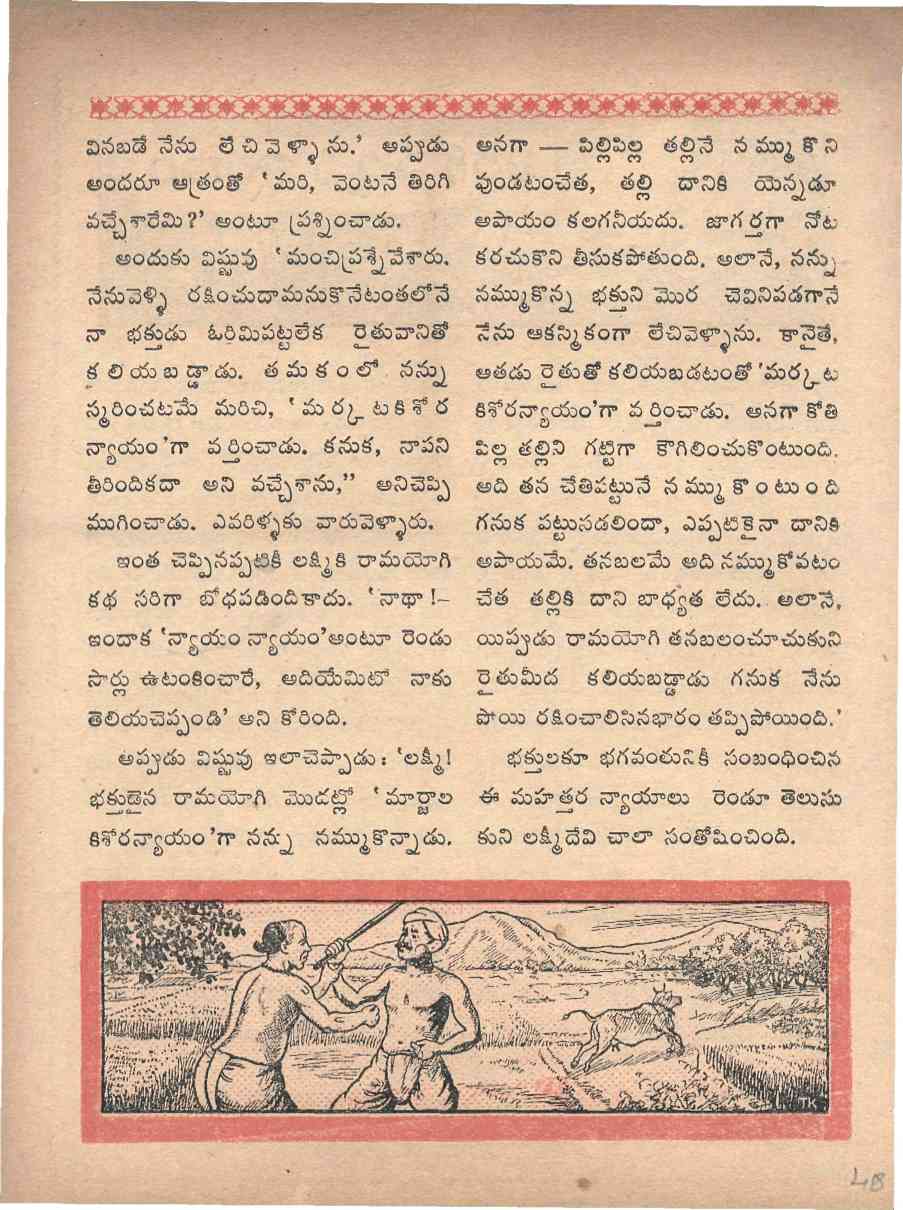 వినబడే నేను లేచివెళ్ళాను.’ అప్పుడు
అందరూ ఆత్రంతో ‘మరి, వెంటనే తిరిగి
వచ్చేశారేమి?’ అంటూ ప్రశ్నించాడు.
అందుకు విష్ణువు ‘మంచిప్రశ్నేవేశారు.
నేనువెళ్ళి రక్షించుదామనుకొనేటంతలోనే
నా భక్తుడు ఓరిమిపట్టలేక రైతువానితో
కలియబడ్డాడు. తమకంలో నన్ను
స్మరించటమే మరిచి, ‘మర్కటకిశోర
న్యాయం’గా వర్తించాడు. కనుక, నాపని
తీరిందికదా అని వచ్చేశాను,” అనిచెప్పి
ముగించాడు. ఎవరిళ్ళకు వారువెళ్ళారు.
ఇంత చెప్పినప్పటికీ లక్ష్మికి రామయోగి
కథ సరిగా బోధపడిందికాదు. ‘నాథా!–
ఇందాక ‘న్యాయం న్యాయం’అంటూ రెండు
సార్లు ఉటంకించారే, అదియేమిటో నాకు
తెలియచెప్పండి’ అని కోరింది.
అప్పుడు విష్ణువు ఇలాచెప్పాడు: ‘లక్ష్మీ!
భక్తుడైన రామయోగి మొదట్లో ‘మార్జాల
కిశోరన్యాయం’గా నన్ను నమ్ముకొన్నాడు.
అనగా — పిల్లిపిల్ల తల్లినే నమ్ముకొని
వుండటంచేత, తల్లి దానికి యెన్నడూ
అపాయం కలగనీయదు. జాగర్తగా నోట
కరచుకొని తీసుకపోతుంది. అలానే, నన్ను
నమ్ముకొన్న భక్తుని మొర చెవినిపడగానే
నేను ఆకస్మికంగా లేచివెళ్ళాను. కానైతే,
అతడు రైతుతో కలియబడటంతో ‘మర్కట
కిశోరన్యాయం’గా వర్తించాడు. అనగా కోతి
పిల్ల తల్లిని గట్టిగా కౌగిలించుకొంటుంది.
అది తన చేతిపట్టునే నమ్ముకొంటుంది
గనుక పట్టుసడలిందా, ఎప్పటికైనా దానికి
అపాయమే. తనబలమే అది నమ్ముకోవటం
చేత తల్లికి దాని బాధ్యత లేదు. అలానే,
యిప్పుడు రామయోగి తనబలంచూచుకుని
రైతుమీద కలియబడ్డాడు గనుక నేను
పోయి రక్షించాలిసినభారం తప్పిపోయింది.’
భక్తులకూ భగవంతునికీ సంబంధించిన
ఈ మహత్తర న్యాయాలు రెండూ తెలుసు
కుని లక్ష్మీదేవి చాలా సంతోషించింది.
TK
48